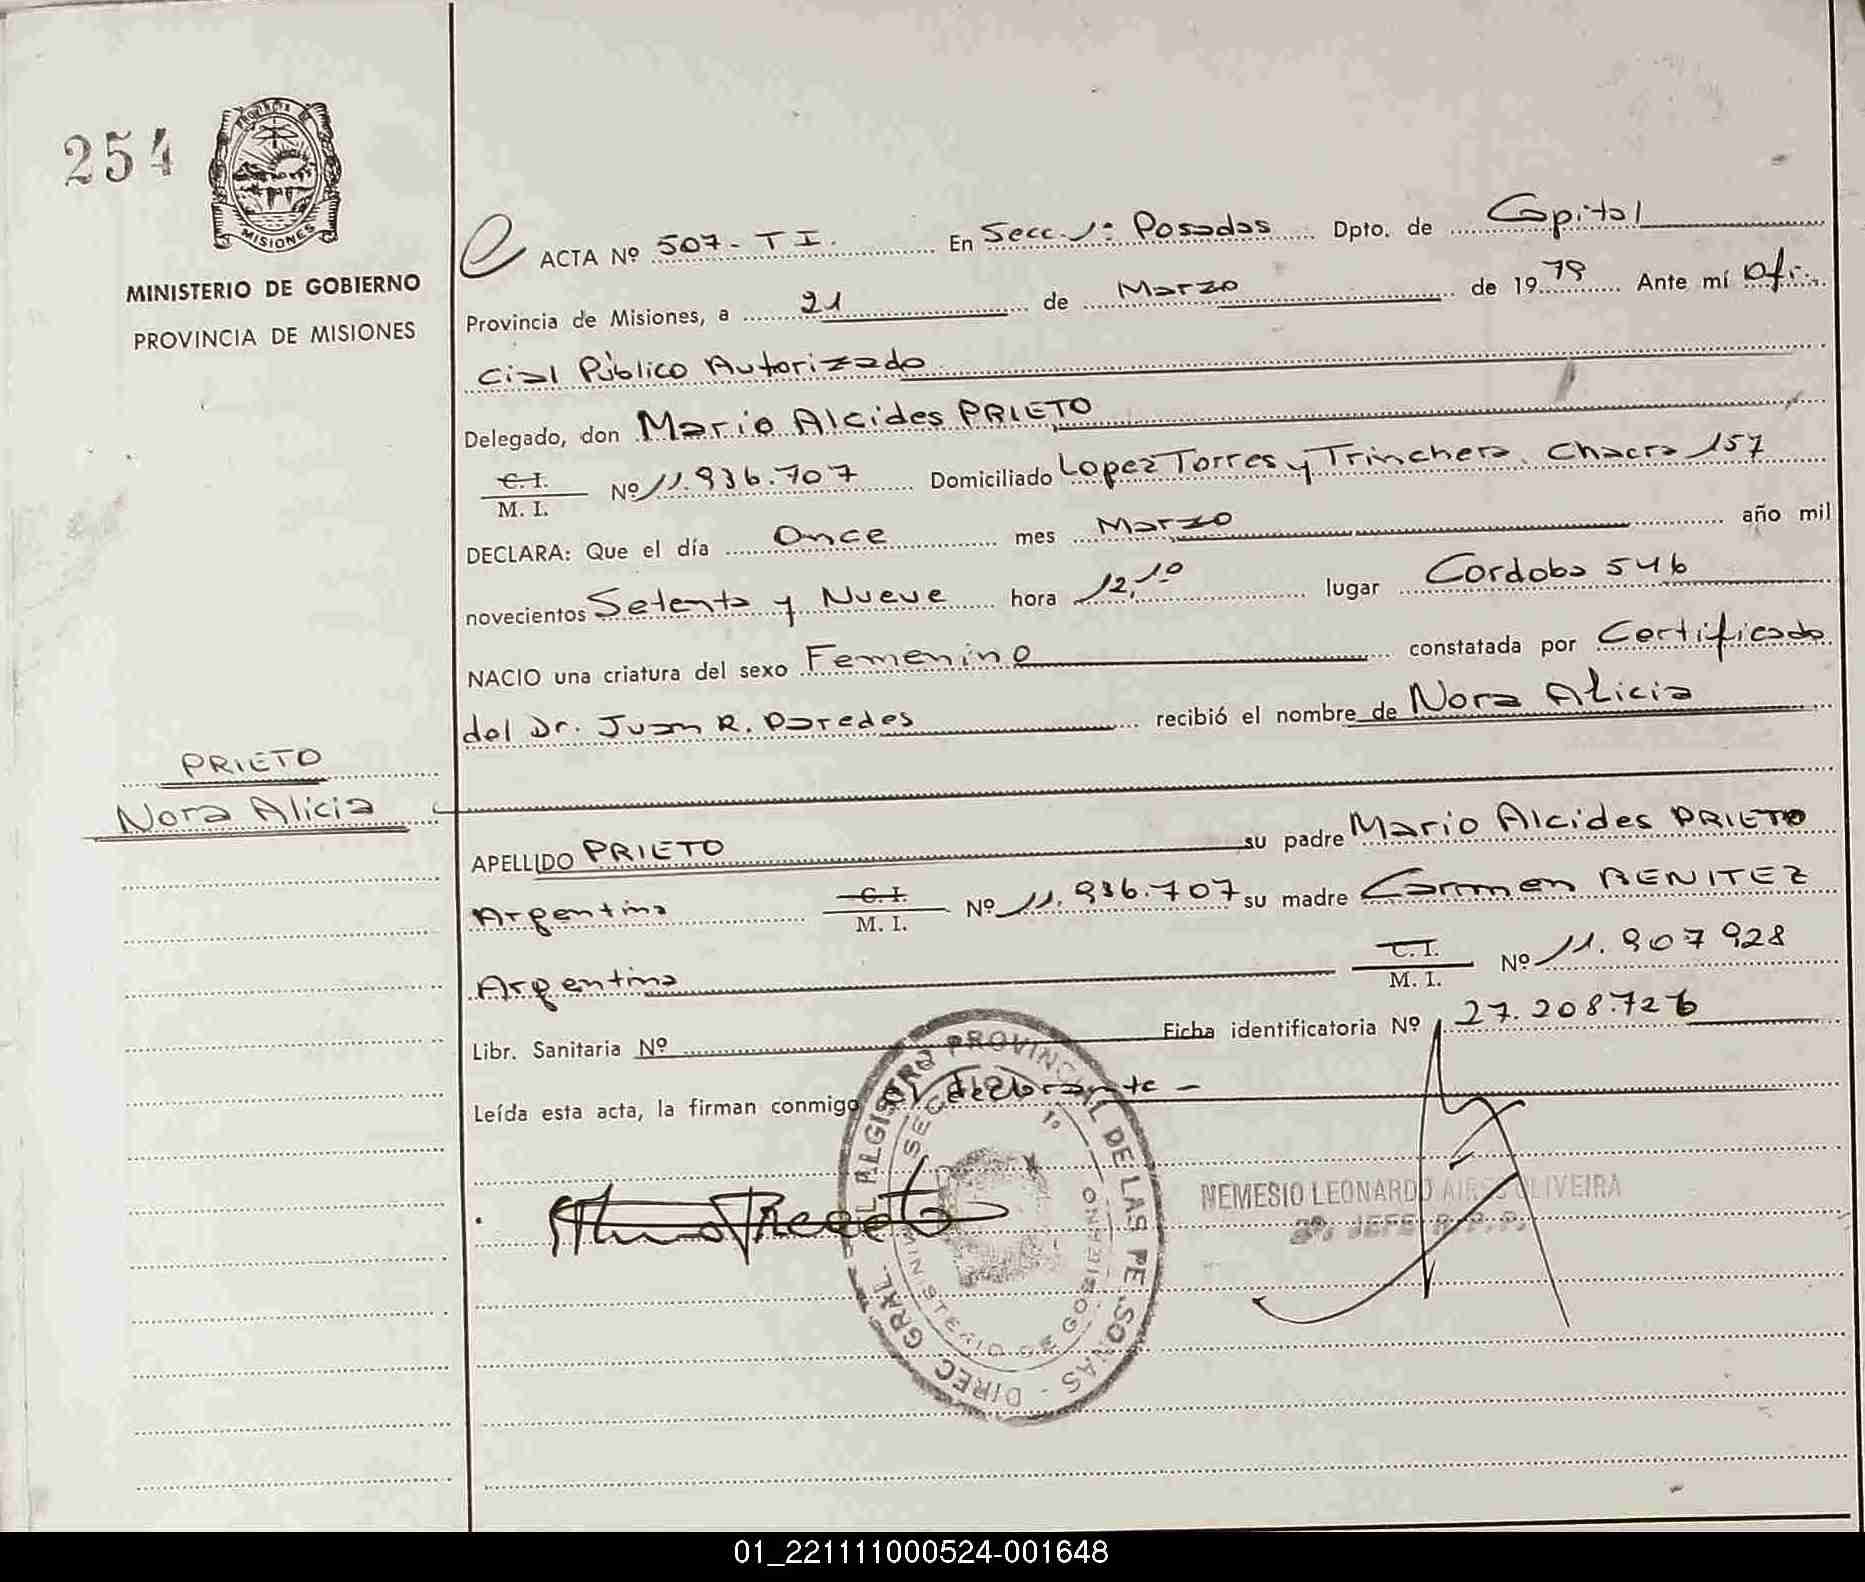 254
PROVINCIA DE
MISIONES
MINISTERIO DE GOBIERNO
PROVINCIA DE MISIONES
ACTA Nº 507-TI. En Secc. 1: Posadas Dpto. de Capital
Provincia de Misiones, a 21 de Marzo de 1979 Ante mí Ofi-
cial Público Autorizado
Delegado, don Mario Alcides PRIETO
C.I. / M. I. Nº 11.936.707 Domiciliado Lopez Torres y Trinchera. Chacra 157
DECLARA: Que el día Once mes Marzo año mil
novecientos Setenta y Nueve hora 12,10 lugar Cordoba 546
NACIO una criatura del sexo Femenino constatada por Certificado
del Dr. Juan R. Paredes recibió el nombre de Nora Alicia
PRIETO
Nora Alicia
APELLIDO PRIETO su padre Mario Alcides PRIETO
Argentina C.I. / M. I. Nº 11.936.707 su madre Carmen BENITEZ
Argentina C.I. / M. I. Nº 11.907928
Libr. Sanitaria Nº Ficha identificatoria Nº 27.208.726
Leída esta acta, la firman conmigo el declarante -
DIREC. GRAL. DEL REGISTRO PROVINCIAL DE LAS PERSONAS -
SECC. 1º
MINISTERIO DE GOBIERNO
Prieto
NEMESIO LEONARDO AIRES OLIVEIRA
JEFE R.P.P.
01_221111000524-001648